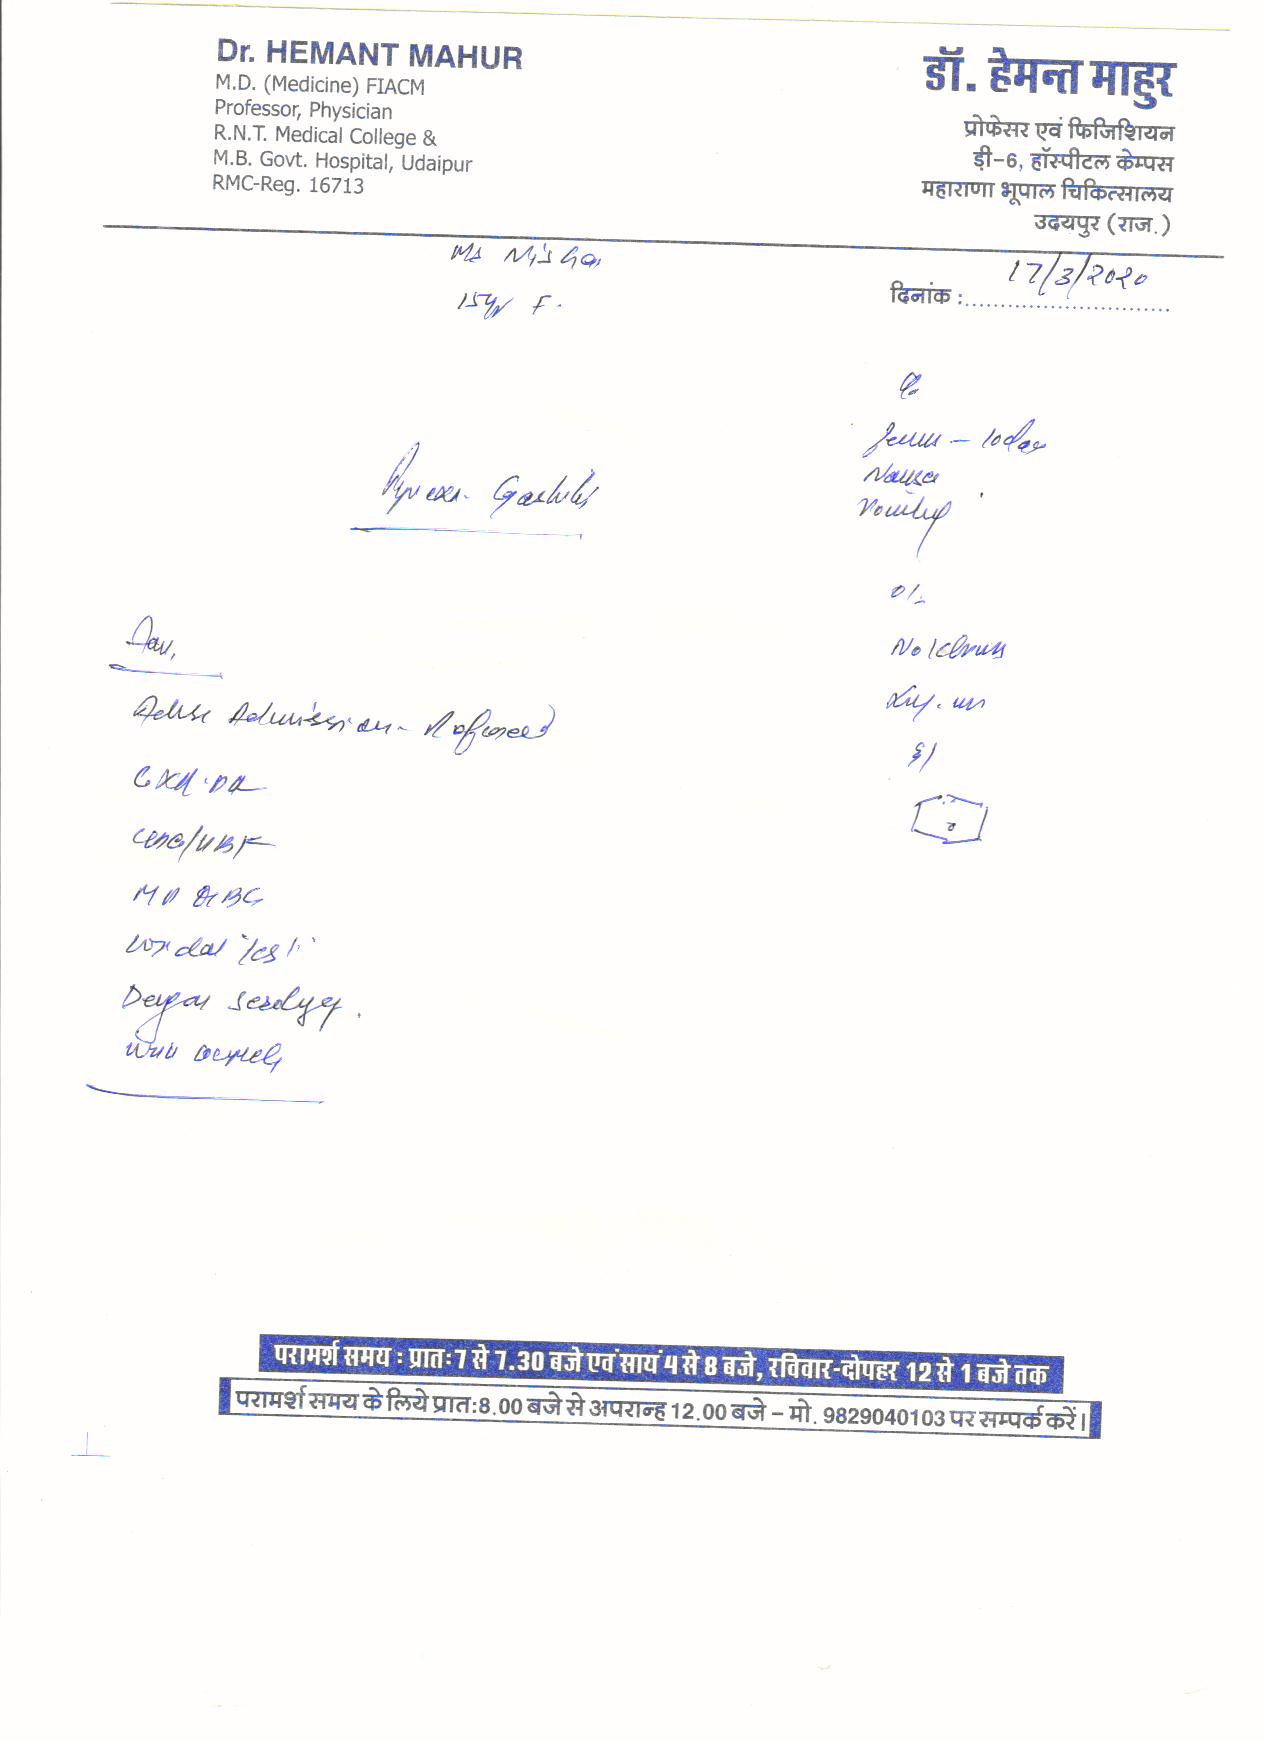 Dr. HEMANT MAHUR
M.D. (Medicine) FIACM
Professor, Physician
R.N.T. Medical College &
M.B. Govt. Hospital, Udaipur
RMC-Reg. 16713
डॉ. हेमन्त माहुर
प्रोफेसर एवं फिजिशियन
डी-6, हॉस्पीटल केम्पस
महाराणा भूपाल चिकित्सालय
उदयपुर (राज.)
Ms Nisha
15yr F.
दिनांक : 17/3/2020
Fever - 10 day
Nausea
Vomiting
Pyrexia Gastritis
O/E
No Icterus
Adv.
Advise Admission - Refused
CBC/
MP
Widal Test
Dengue Serology
परामर्श समय : प्रातः 7 से 7.30 बजे एवं सायं 4 से 8 बजे, रविवार-दोपहर 12 से 1 बजे तक
परामर्श समय के लिये प्रात:8.00 बजे से अपरान्ह 12.00 बजे – मो. 9829040103 पर सम्पर्क करें।